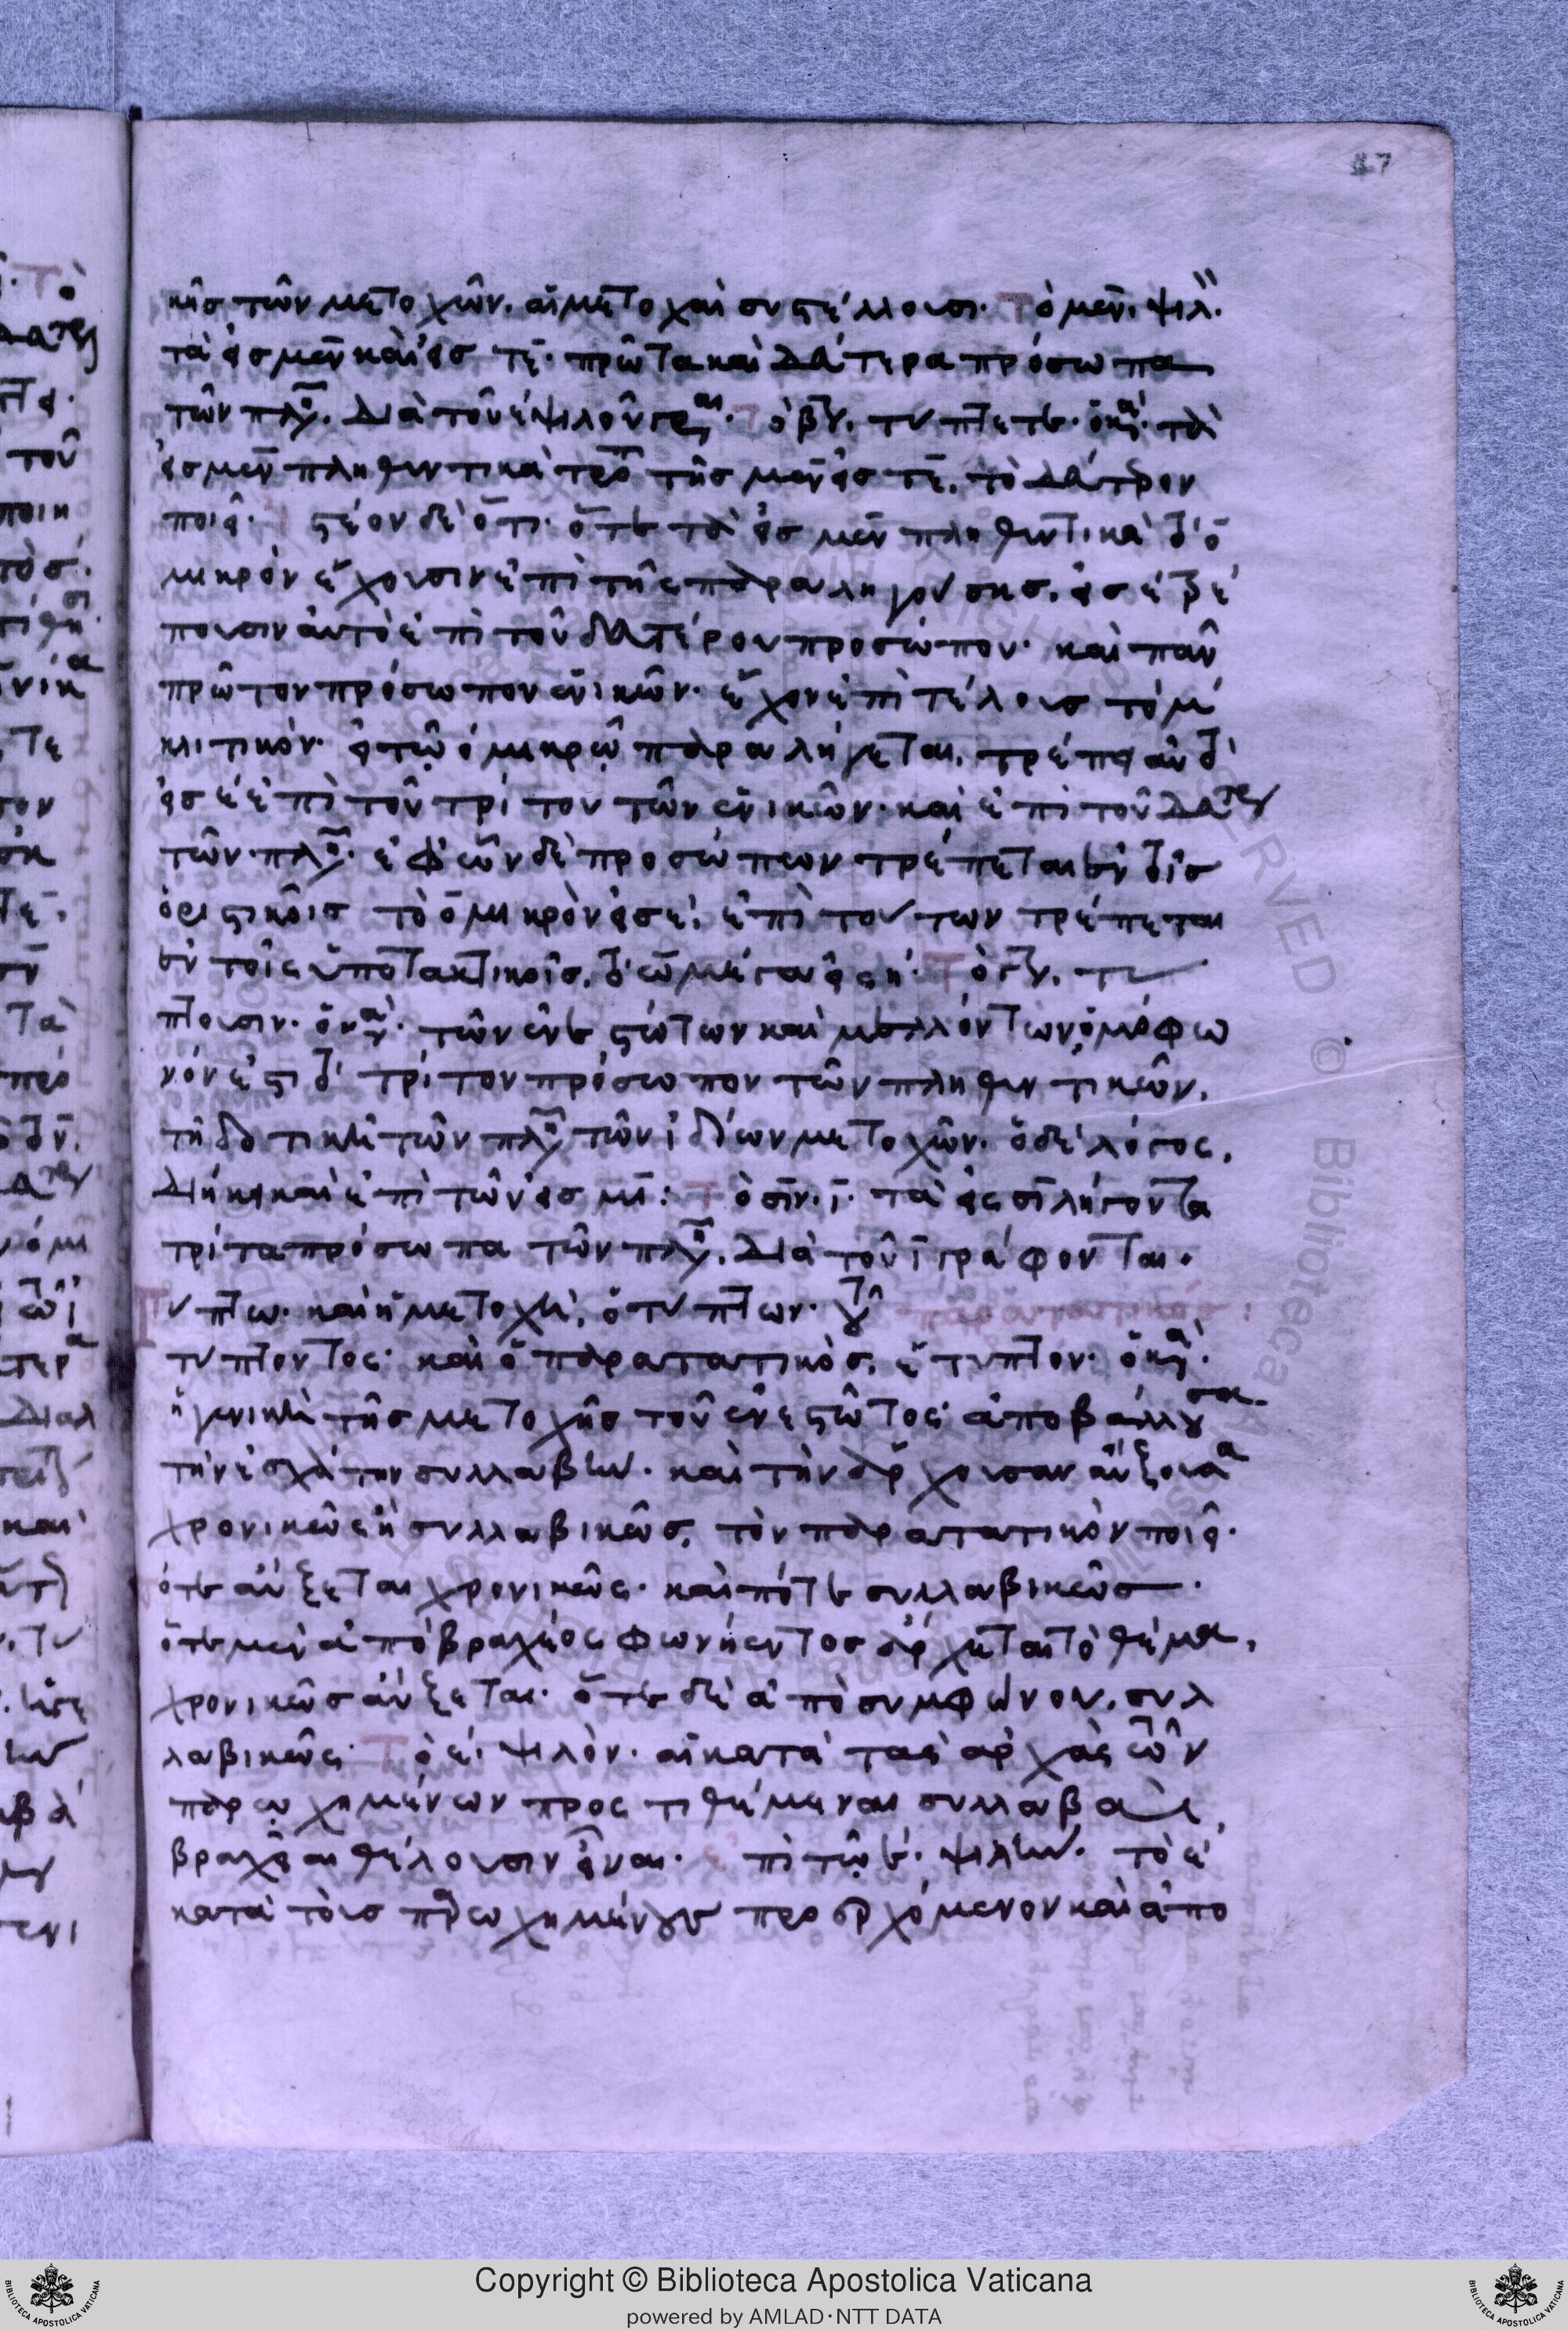 47
κῆς τῶν μετοχῶν. αἱ μετοχαὶ συστέλλουσι. Τὸ μεν, ψιλ.
τὰ εἰς μεν καὶ εἰς τε. πρῶτα καὶ δεύτερα πρόσωπα
τῶν πλη. διὰ τοῦ ε ψιλοῦ Τὸ β. τύπτετε.
εἰς μεν πληθυντικὰ τῆς μεν εἰς τε, τὸ δεύτερον
ποιεῖ. Ἰστέον δὲ ὅτι. ὅτε τὰ εἰς μεν πληθυντικὰ τὸ ο
μικρὸν ἔχουσιν ἐπὶ τῆς παραληγούσης, εἰς ε τρέ
πουσιν αὐτὸ ἐπὶ τοῦ δευτέρου προσώπου. καὶ πᾶν
πρῶτον πρόσωπον ἑνικῶν. ἔχον ἐπὶ τέλους τὸ μ
κλιτικόν. εἰ τῷ ο μικρῷ παραλήγεται, τρέπει αὐτὸ
εἰς ε ἐπὶ τοῦ τρίτου τῶν ἑνικῶν. καὶ ἐπὶ τοῦ δευτέρου
τῶν πλη. ἐφ' ὧν δὲ προσώπων τρέπεται ἐν τοῖς
ὁριστικοῖς τὸ ο μικρὸν εἰς ε, ἐπὶ τούτων τρέπεται
ἐν τοῖς ὑποτακτικοῖς, τὸ ω μέγα εἰς η. Τὸ γ. τύ
πτουσιν. τῶν ἐνεστώτων καὶ μελλόντων, ὁμόφω
νόν ἐστι τὸ τρίτον πρόσωπον τῶν πληθυντικῶν,
τῇ δοτικῇ τῶν πλη τῶν ἰδίων μετοχῶν. ὁ δὲ λόγος,
διήκει καὶ ἐπὶ τῶν εἰς μι: Τὸ σιν. ι. τὰ εἰς σι λήγοντα
τρίτα πρόσωπα τῶν πλη. διὰ τοῦ ι γράφονται.
Τύπτω. καὶ ἡ μετοχὴ, ὁ τύπτων. τοῦ παρατατικός:
τύπτοντος. καὶ ὁ παρατατικὸς, ἔτυπτον.
ἡ γενικὴ τῆς μετοχῆς τοῦ ἐνεστῶτος ἀποβάλλουσα
τὴν ἐσχάτην συλλαβὴν. καὶ τὴν ἄρχουσαν αὔξουσα
χρονικῶς ἢ συλλαβικῶς, τὸν παρατατικὸν ποιεῖ.
ότε αὔξεται χρονικῶς. καὶ πότε συλλαβικῶς.
ὅτε μὲν ἀπὸ βραχέος φωνήεντος ἄρχεται τὸ θέμα,
χρονικῶς αὔξεται. ὅτε δὲ ἀπὸ συμφώνου, συλ
λαβικῶς. Τὸ ε, ψιλὸν. αἱ κατὰ τὰς ἀρχὰς τῶν
παρῳχημένων προστιθέμεναι συλλαβαὶ,
βραχεῖαι θέλουσιν εἶναι. πι τῷ ε. ψιλὴν. τὸ ε
κατὰ τοὺς παρῳχημένους προσερχόμενον καὶ ἀπο
Copyright © Biblioteca Apostolica Vaticana
powered by AMLAD·NTT DATA